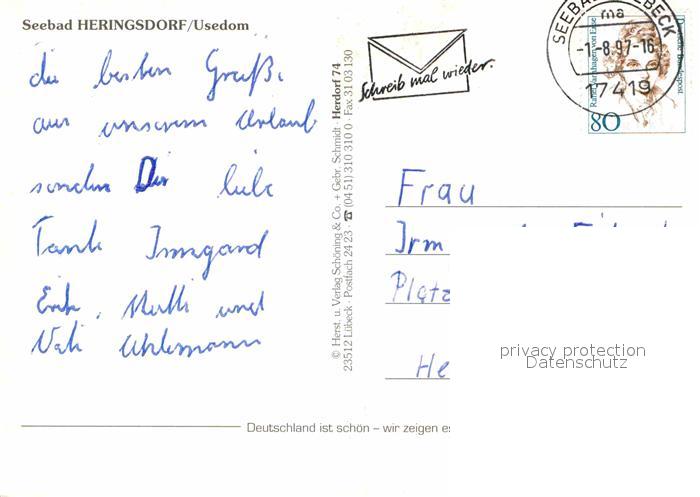 Seebad HERINGSDORF/Usedom
die besten Grüße
aus unserem Urlaub
senden Dir liebe
Tante Irmgard
Erik, Mutti und
Vati
© Herst. u. Verlag Schöning & Co. + Gebr. Schmidt · Herdorf 74
23512 Lübeck · Postfach 24 23 ☎ (04 51) 310 310 0 · Fax 31 03 130
Schreib mal wieder.
SEEBAD
ma
-1.-8.97-16
17419
Rahel Varnhagen von Ense
Deutsche Bundespost
80
Frau
Irm
Platz
He
privacy protection
Datenschutz
Deutschland ist schön – wir zeigen es